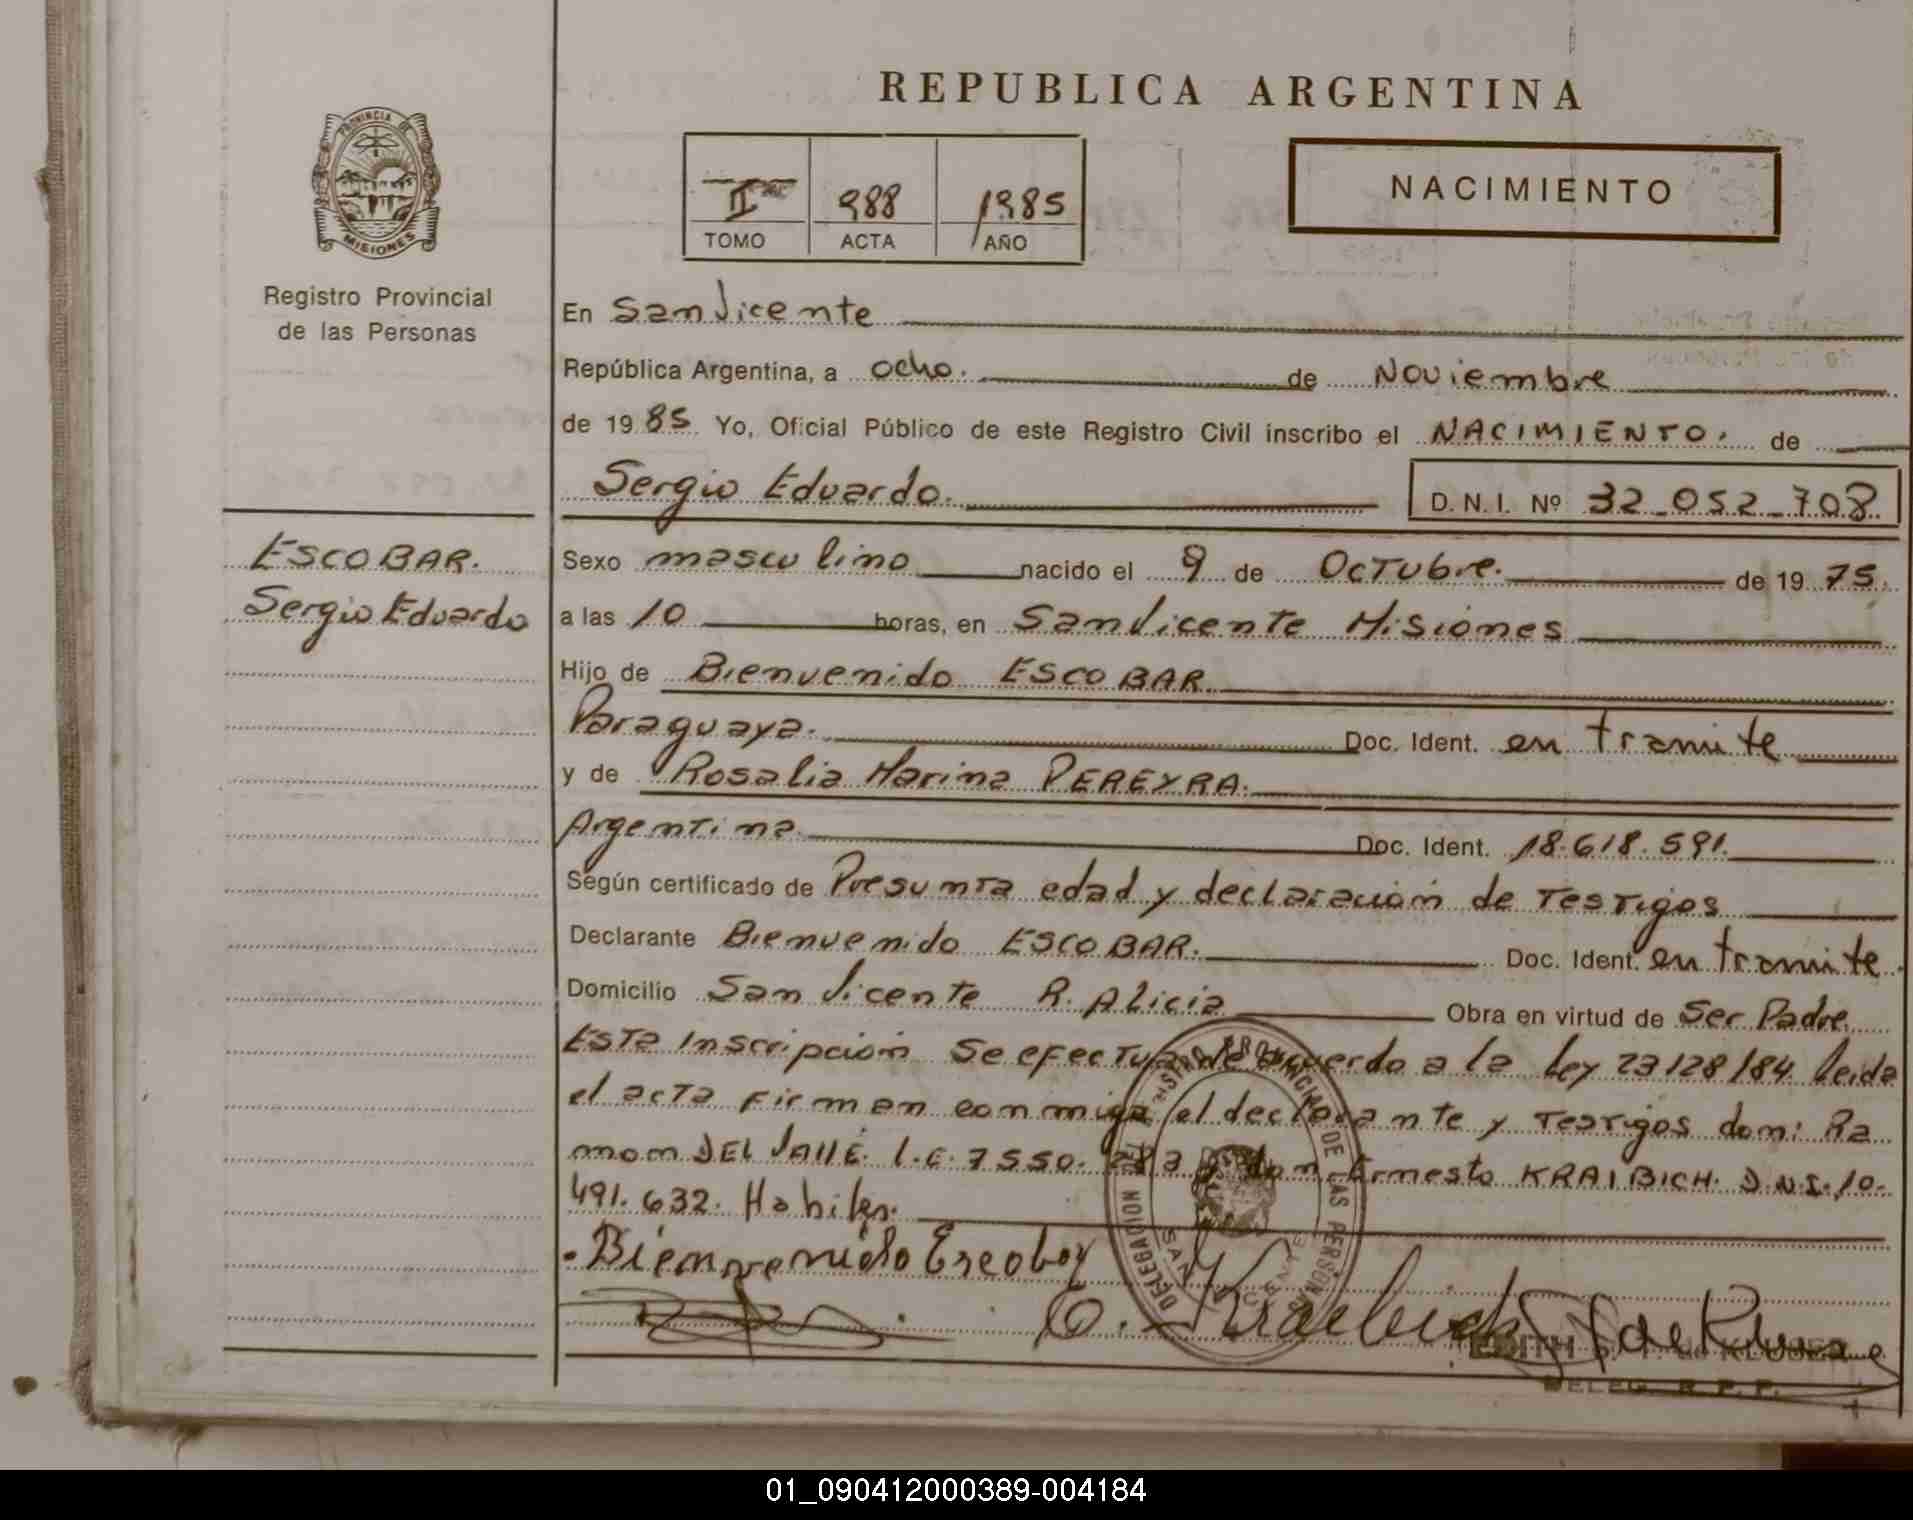 REPUBLICA ARGENTINA
PROVINCIA DE
MISIONES
Registro Provincial
de las Personas
II 988 1985
TOMO ACTA AÑO
NACIMIENTO
En San Vicente
República Argentina, a ocho. de Noviembre
de 19 85 Yo, Oficial Público de este Registro Civil inscribo el NACIMIENTO. de
Sergio Eduardo. D. N. I. Nº 32_052_708
ESCOBAR.
Sergio Eduardo
Sexo masculino nacido el 9 de Octubre. de 19 75.
a las 10 horas, en San Vicente Misiones
Hijo de Bienvenido ESCOBAR.
Paraguaya. Doc. Ident. en tramite
y de Rosalia Marina PEREYRA.
Argentina. Doc. Ident. 18.618.591.
Según certificado de Presunta edad y declaración de Testigos
Declarante Bienvenido ESCOBAR. Doc. Ident. en tramite.
Domicilio San Vicente R. Alicia Obra en virtud de Ser Padre.
Esta Inscripción se efectua de acuerdo a la Ley 23128/84 leida
el acta firman conmigo el declarante y Testigos don: Ra
mon DEL VALLE. L.E. 7550. y don Ernesto KRAIBICH. D.N.I. 10.
491.632. Habiles.
Bienvenido Escobar
E. Kraibich
EDITH S. F. de KLUBER
DELEG. R. P. P.
REGISTRO PROVINCIAL DE LAS PERSONAS
DELEGACION
SAN VICENTE
01_090412000389-004184